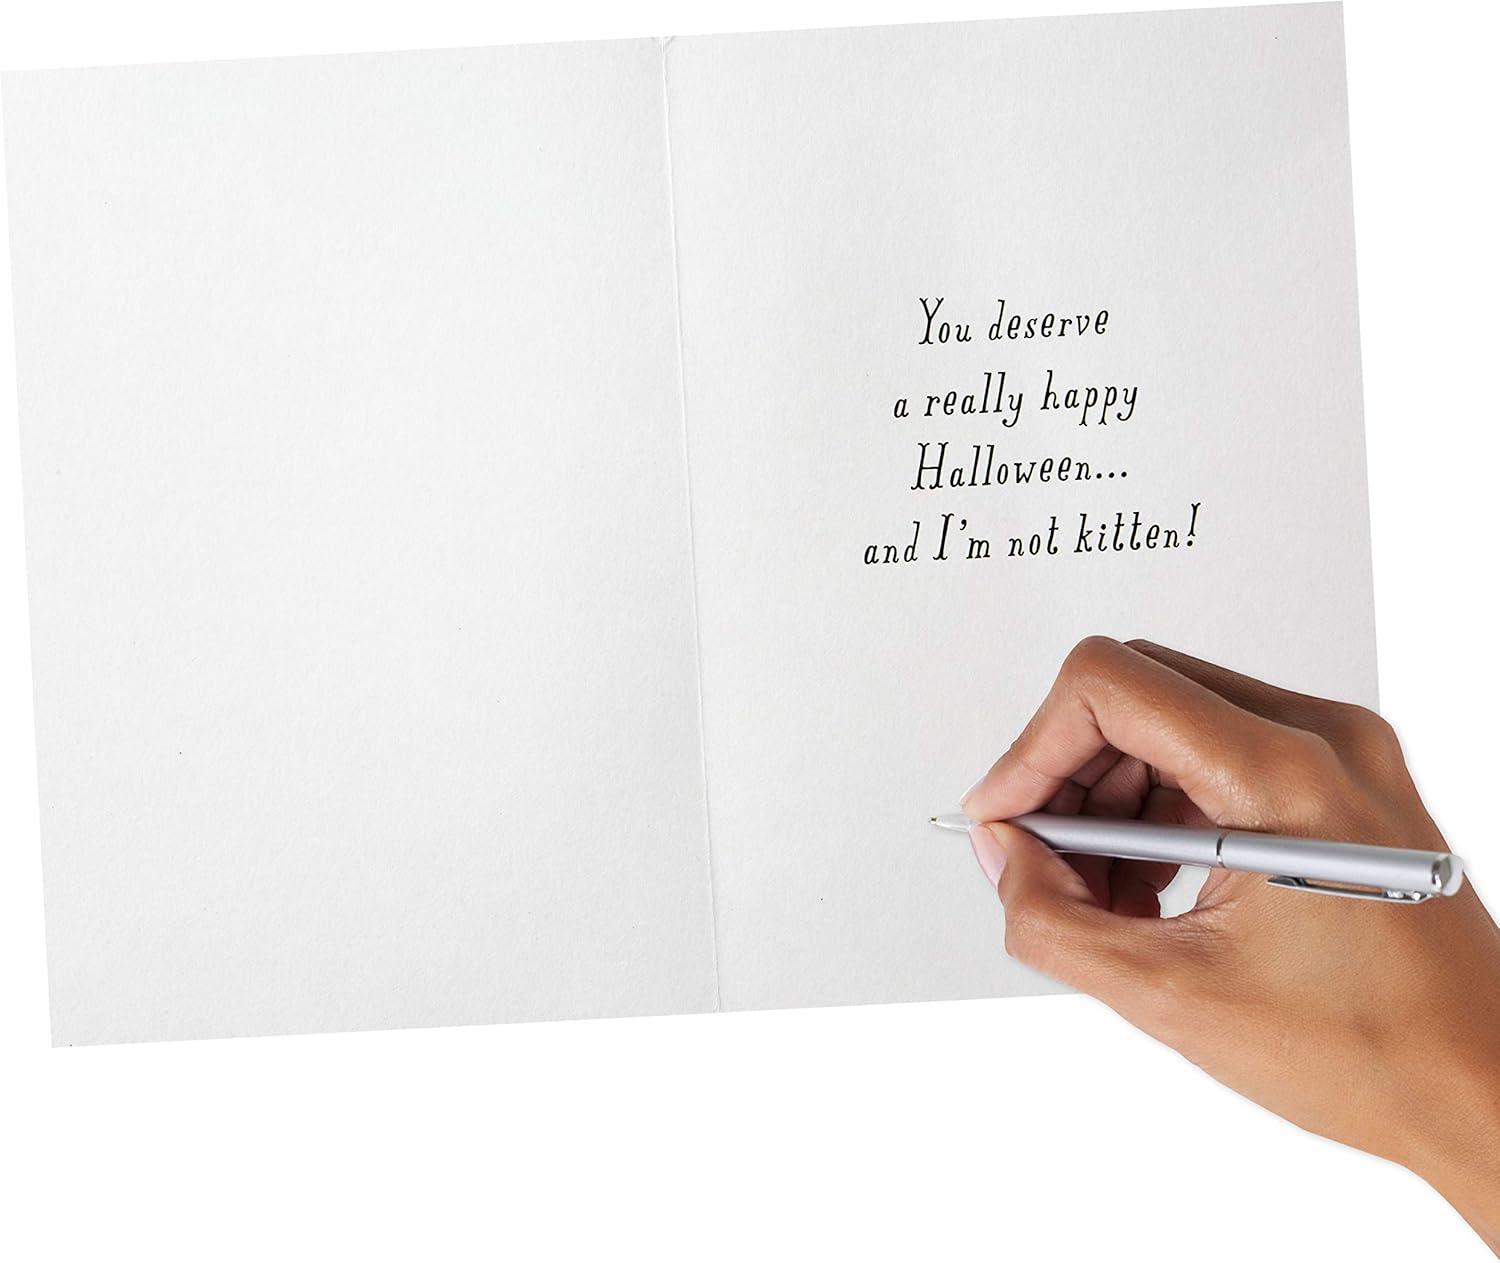 You deserve
a really happy
Halloween...
and I'm not kitten!